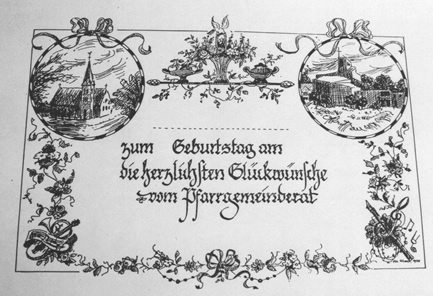 zum Geburtstag am
die herzlichsten Glückwünsche
vom Pfarrgemeinderat